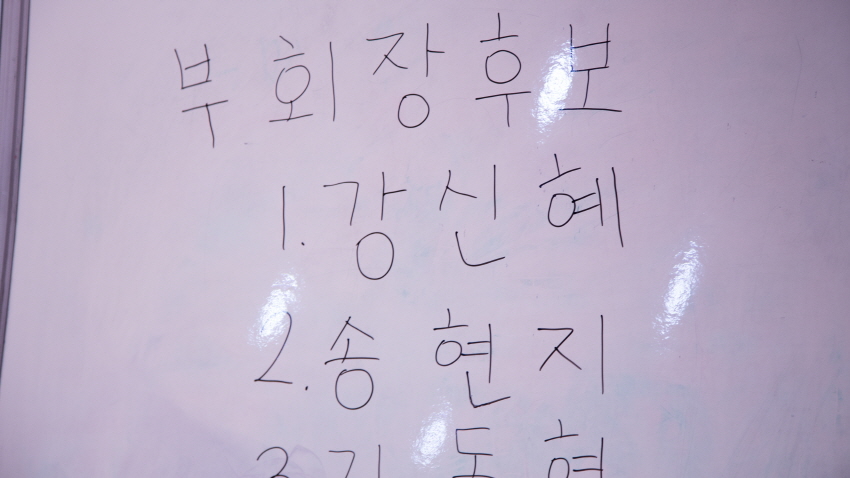 부회장후보
1. 강신혜
2. 송현지
3.